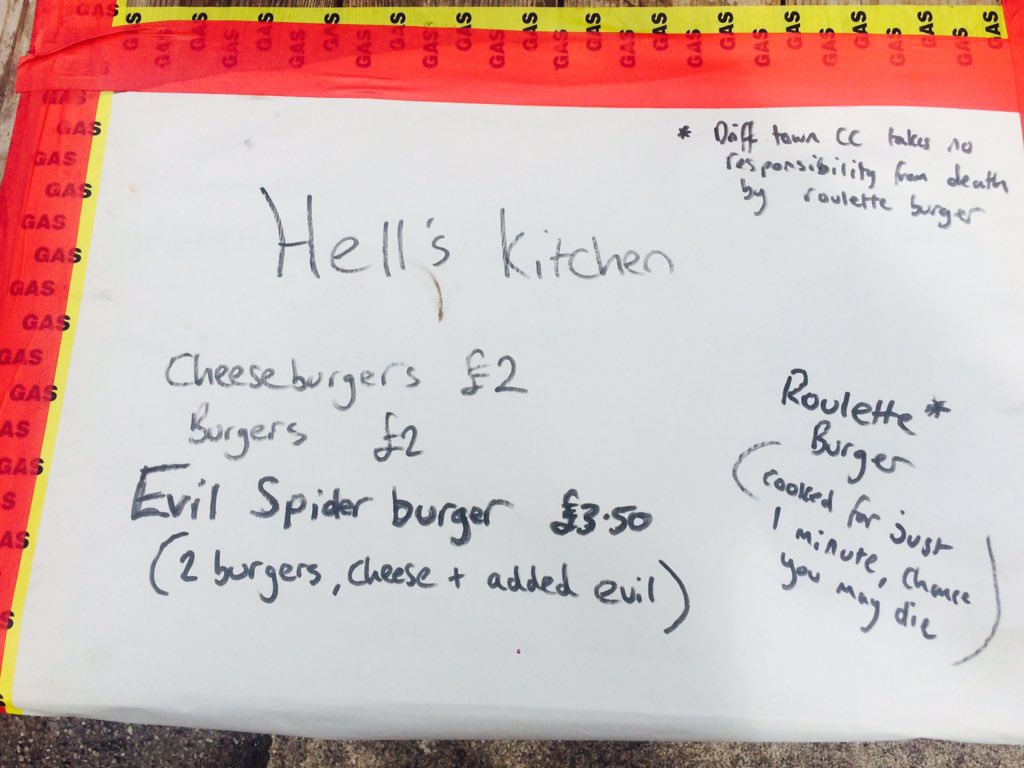 GAS GAS GAS GAS GAS GAS GAS GAS GAS GAS GAS GAS GAS GAS GAS
GAS GAS GAS GAS GAS GAS GAS GAS GAS GAS GAS GAS GAS
* Driff town CC takes no
responsibility from death
by roulette burger
Hell's Kitchen
Cheeseburgers £2
Burgers £2
Evil Spider burger £3.50
(2 burgers, cheese + added evil)
Roulette*
Burger
(cooked for just
1 minute, chance
you may die)
GAS
GAS
GAS
GAS
GAS
GAS
GAS
GAS
GAS
GAS
AS
GAS
S
AS
S